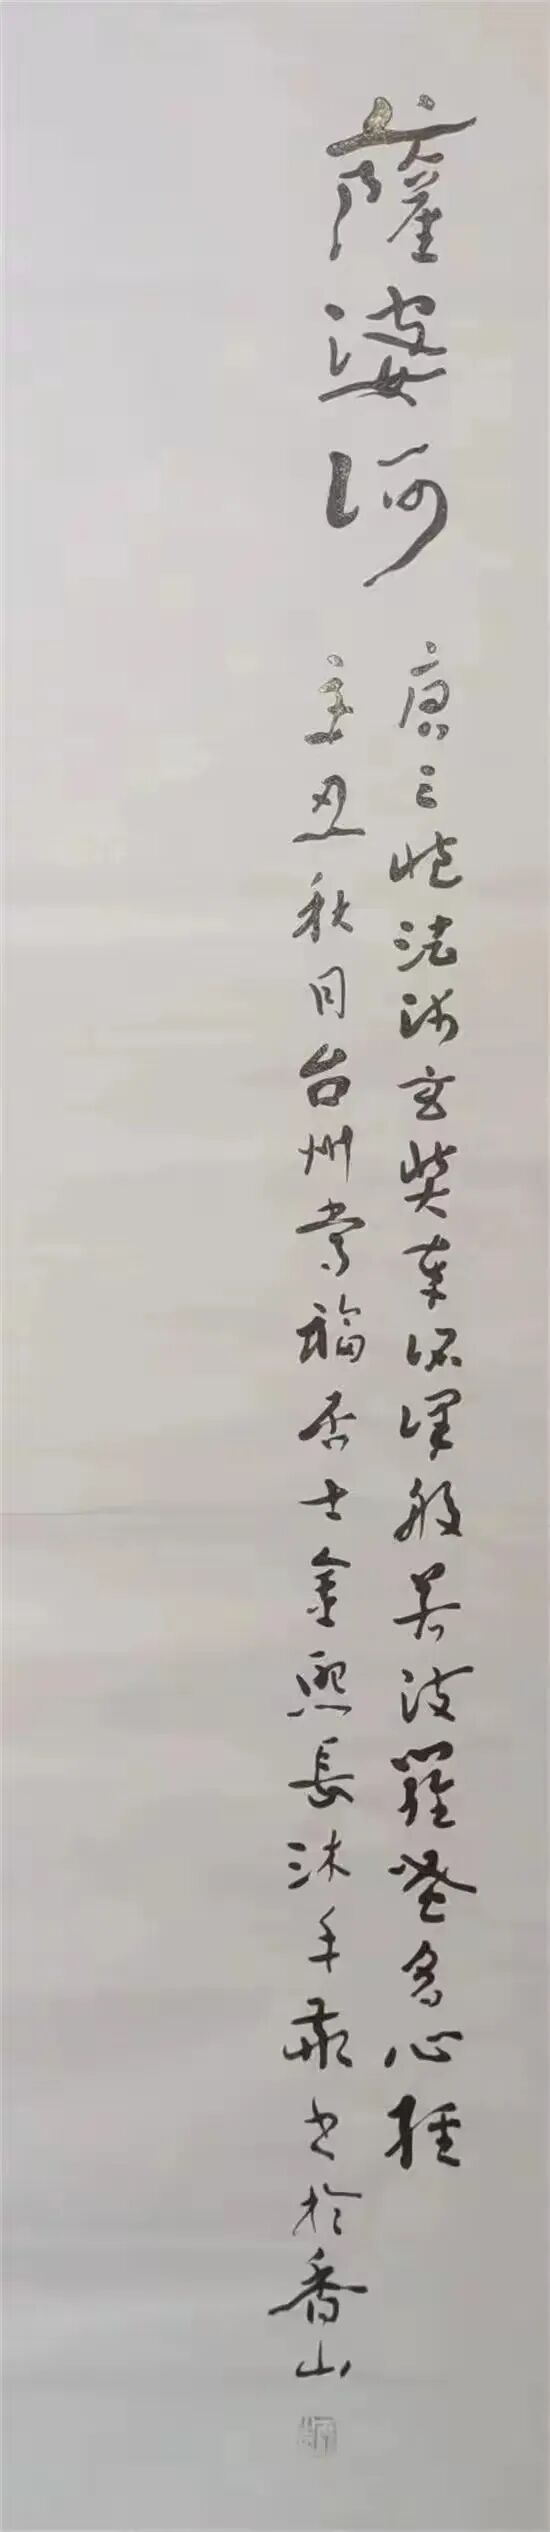 薩婆訶
唐三藏法師玄奘奉詔譯般若波羅蜜多心經
辛丑秋月台州常福居士金熙長沐手敬书於香山